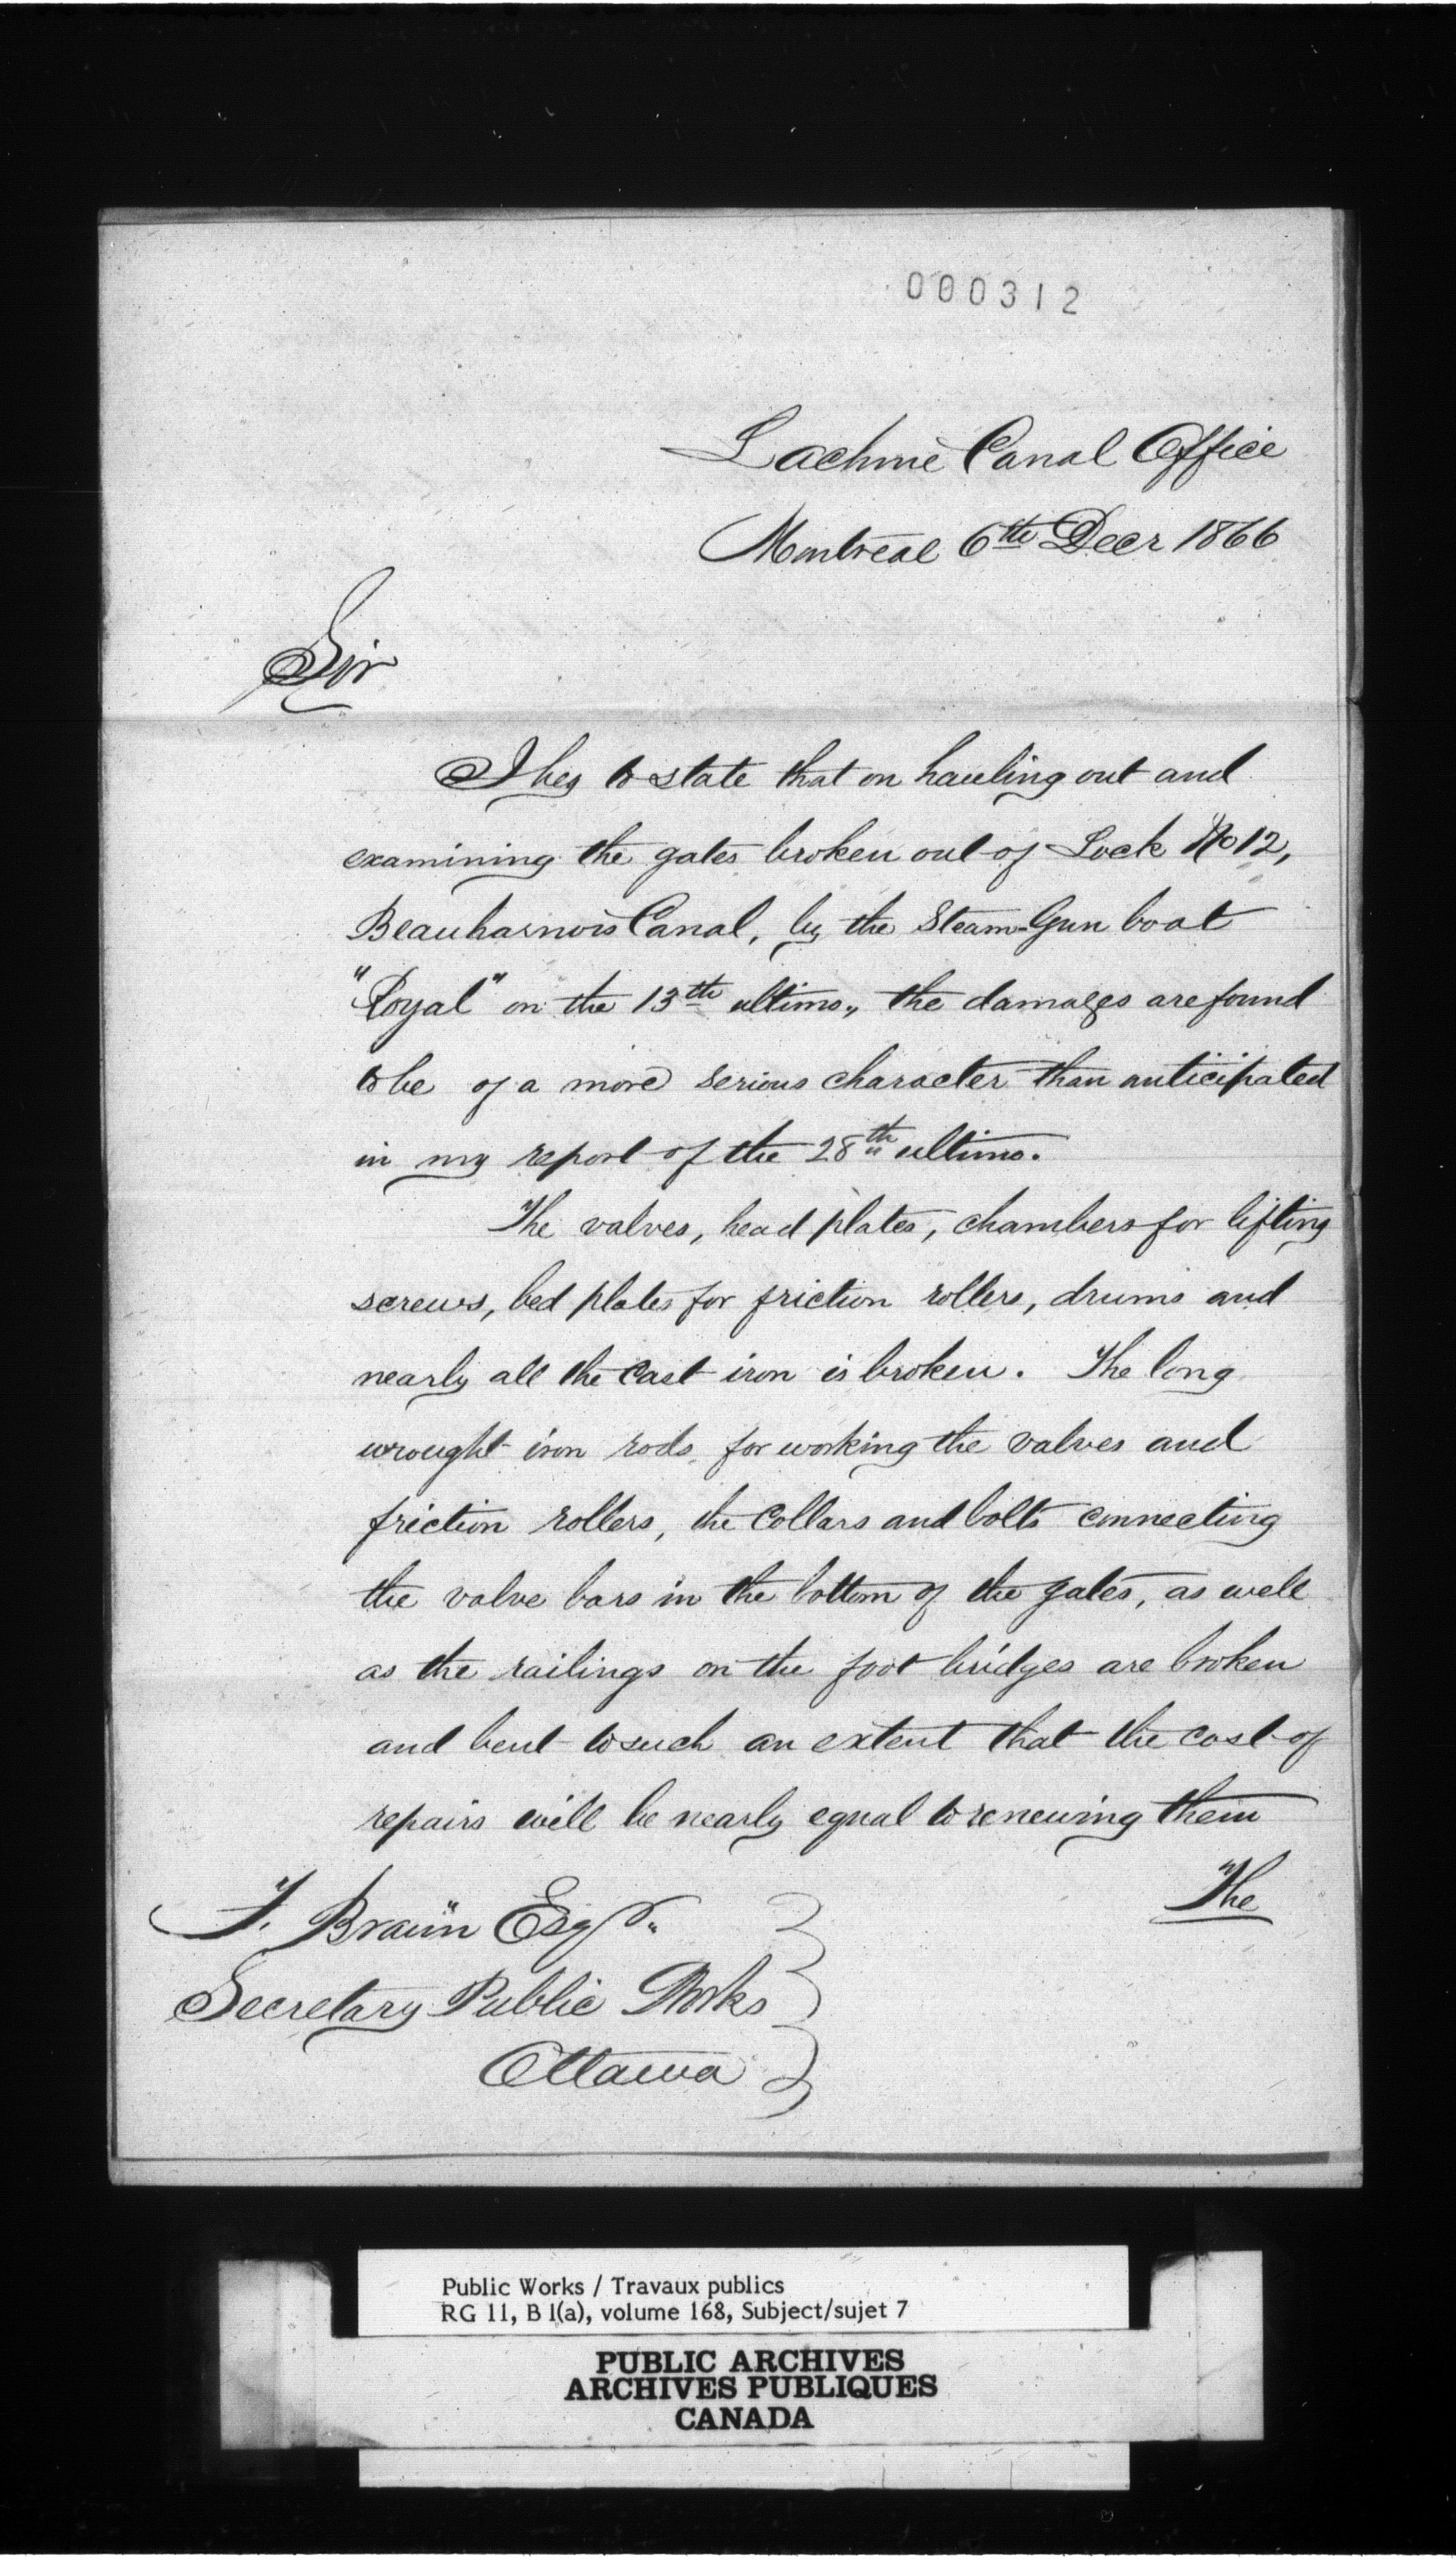 000312
Lachine Canal Office
Montreal 6th Decr 1866
Sir
I beg to state that on hauling out and
examining the gates broken out of Lock No 12,
Beauharnois Canal, by the Steam-Gun boat
"Royal" on the 13th ultimo, the damages are found
to be of a more serious character than anticipated
in my report of the 28th ultimo.
The valves, head plates, chambers for lifting
screws, bed plates for friction rollers, drums and
nearly all the cast iron is broken. The long
wrought iron rods for working the valves and
friction rollers, the collars and bolts connecting
the valve bars in the bottom of the gates, as well
as the railings on the foot bridges are broken
and bent to such an extent that the cost of
repairs will be nearly equal to renewing them
The
F. Braün Esqr.
Secretary Public Works
Ottawa
Public Works / Travaux publics
RG 11, B 1(a), volume 168, Subject/sujet 7
PUBLIC ARCHIVES
ARCHIVES PUBLIQUES
CANADA